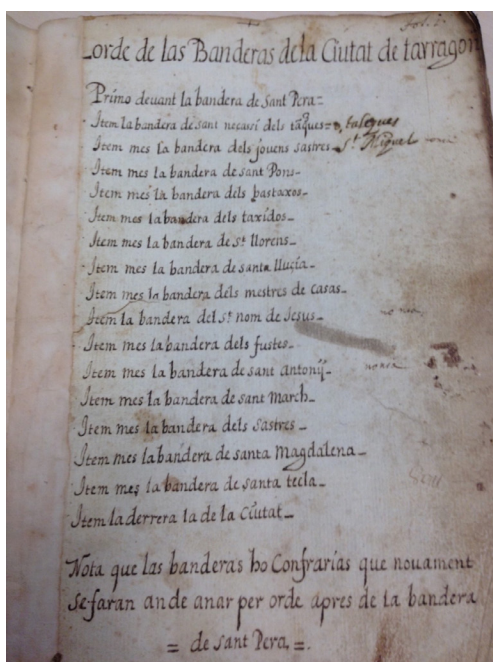 fol. 1.
Lorde de las Banderas dela Ciutat de tarragon
Primo devant la bandera de Sant Pera=
Item la bandera de sant necassi dels taques= o, talegues
Item mes la bandera dels jovens sastres_ St. Miquel
Item mes la bandera de sant Pons_
Item mes la bandera dels bastaxos_
Item mes la bandera dels taxidos_
Item mes la bandera de st. llorens_
Item mes la bandera de santa llucia_
Item mes la bandera dels mestres de casas_
Item la bandera del st. nom de Jesus_ no nea
Item mes la bandera dels fustes_
Item mes la bandera de sant Antonij_ no nea
Item mes la bandera de sant March_
Item mes la bandera dels Sastres_
Item mes la bandera de santa Magdalena_
Item mes la bandera de santa tecla_
Item la derrera la de la Ciutat_
Nota que las banderas ho Confrarias que novament
Se-faran an de anar per orde apres de la bandera
= de Sant Pera, =.